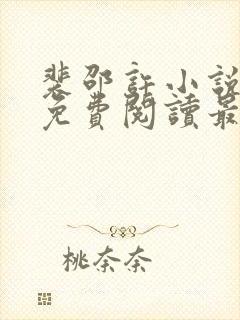 裴邵許小說
免費閱讀最
桃奈奈